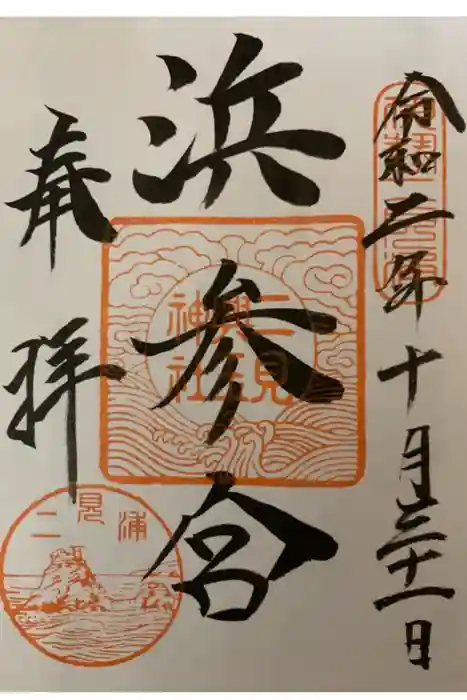 令和二年十月三十一日
浜参宮
二見興玉神社
奉拝
二見浦